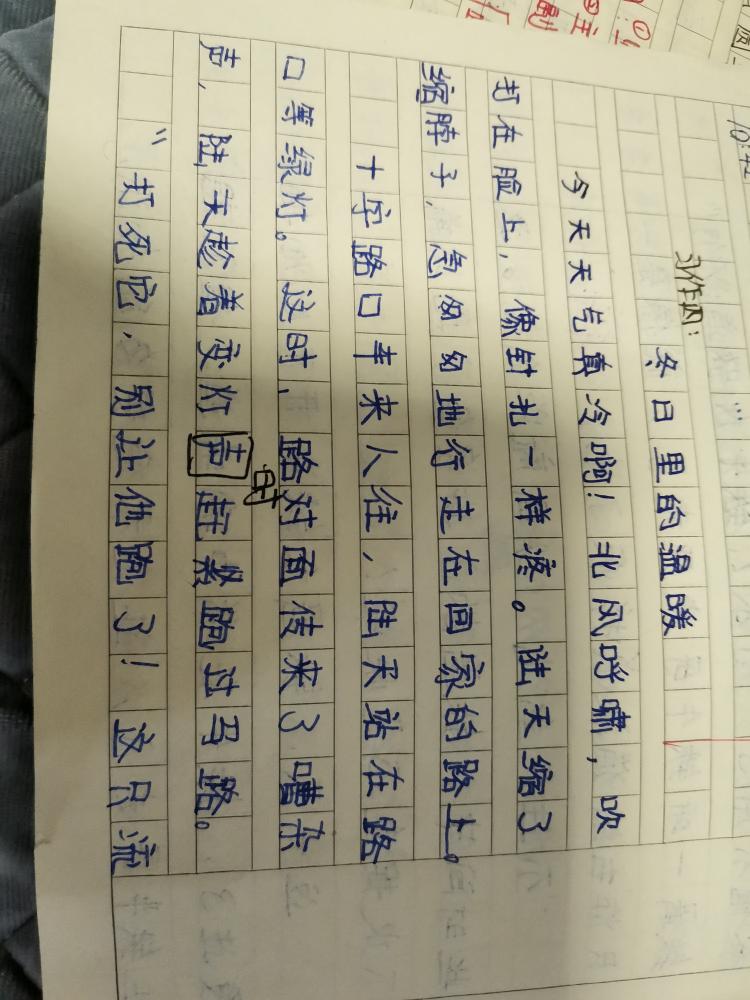 10:42
习作四:
冬日里的温暖
今天天气真冷啊!北风呼啸,吹
打在脸上,像针扎一样疼。陆天缩了
缩脖子,急匆匆地行走在回家的路上。
十字路口车来人往,陆天站在路
口等绿灯。这时,路对面传来了嘈杂
声,陆天趁着变灯时赶紧跑过马路。
“打死它,别让他跑了!这只流